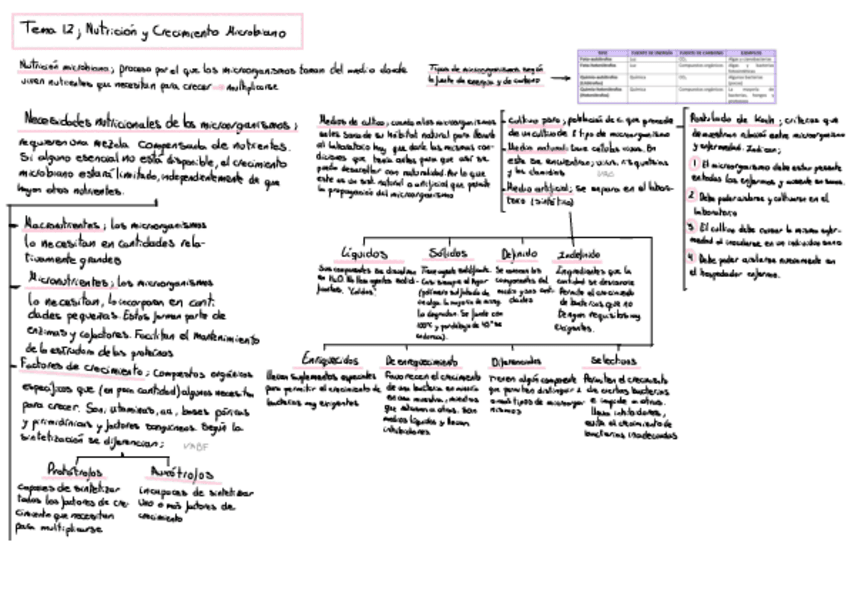 Tema 12; Nutrición y Crecimiento Microbiano
Nutrición microbiana; proceso por el que los microorganismos toman del medio donde
viven nutrientes que necesitan para crecer multiplicarse
Tipos de microorganismos según
la fuente de energía y de carbono
TIPO FUENTE DE ENERGÍA FUENTE DE CARBONO EJEMPLOS
Luz CO₂
Luz Compuestos orgánicos
Química CO₂
Química Compuestos orgánicos
Necesidades nutricionales de los microorganismos;
requieren una mezcla compensada de nutrientes.
Si alguno esencial no está disponible, el crecimiento
microbiano estará limitado, independientemente de que
hayan otros nutrientes.
Macronutrientes; los microorganismos
lo necesitan en cantidades rela-
tivamente grandes
Micronutrientes; los microorganismos
lo necesitan, lo incorporan en cant.
dades pequeñas. Estos forman parte de
enzimas y cofactores. Facilitan el mantenimiento
de la estructura de las proteínas
Factores de crecimiento; compuestos orgánicos
específicos que (en poca cantidad) algunos necesitan
para crecer. Son; vitaminas, aa, bases púricas
y pirimidínicas y factores sanguíneos. Según la
sintetización se diferencian;
Protótrofos
capaces de sintetizar
todos los factores de cre-
cimiento que necesitan
para multiplicarse
Auxótrofos
incapaces de sintetizar
uno o más factores de
crecimiento
Medios de cultivo; cuando a los microorganismos
se les saca de su hábitat natural para llevarlo
al laboratorio hay que darle las mismas con-
diciones que tenía antes para que así se
pueda desarrollar con naturalidad. Por lo que
este es un sist. natural o artificial que permite
la propagación del microorganismo
Cultivo puro; población de c. que procede
de un cultivo de 1 tipo de microorganismo
Medio natural; Tiene células vivas. En
este se encuentran; virus, rickettsias
y las clamidias
Medio artificial; Se prepara en el labora-
torio (sintético)
Postulado de Koch; criterios que
demuestran relación entre microorganismo
y enfermedad. Indican;
1 El microorganismo debe estar presente
en todos los enfermos y ausente en sanos.
2 Debe poder aislarse y cultivarse en el
laboratorio
3 El cultivo debe causar la misma enfer-
medad al inocularse en un individuo sano
4 Debe poder aislarse nuevamente en
el hospedador enfermo.
Líquidos
Sus componentes se disuelven
en H₂O. No lleva agentes solidi-
ficantes. "Caldos"
Sólidos
Tiene agente solidificante.
Casi siempre el Agar
Definido
Se conocen los
componentes del
medio y sus canti-
dades
Indefinido
Ingredientes que la
cantidad se desconoce
Permite el crecimiento
de bacterias que no
tengan requisitos muy
exigentes.
Enriquecidos
Llevan suplementos especiales
para permitir el crecimiento de
bacterias muy exigentes
De enriquecimiento
Favorecen el crecimiento
de una bacteria en minoría
en una muestra, medios
que estimulan a otros. Son
medios líquidos y llevan
inhibidores
Diferenciales
Tienen algún componente
que permiten distinguir 2
o más tipos de microorga-
nismos
Selectivos
Permiten el crecimiento
de ciertas bacterias
e impide a otras.
Lleva inhibidores,
evita el crecimiento de
bacterias inadecuadas